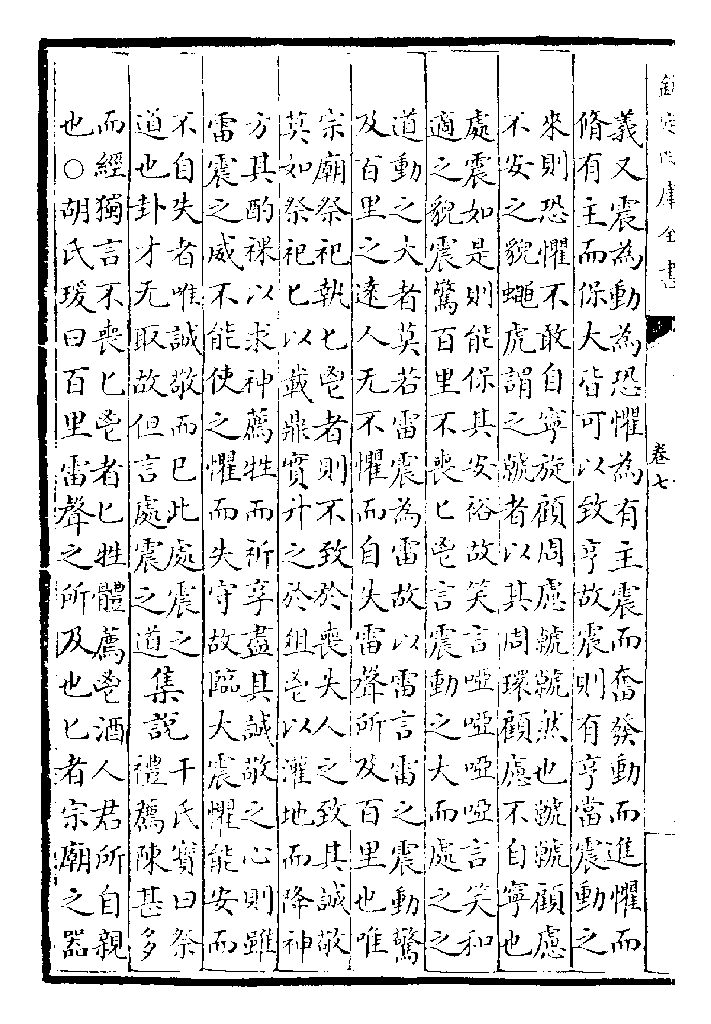 欽定四庫全書
卷七
義又震為動為恐懼為有主震而奮發動而進懼而
脩有主而保大皆可以致亨故震則有亨當震動之
來則恐懼不敢自寧旋顧周慮虩虩然也虩虩顧慮
不安之貌蠅虎謂之虩者以其周環顧慮不自寧也
處震如是則能保其安裕故笑言啞啞啞啞言笑和
適之貌震驚百里不喪匕鬯言震動之大而處之之
道動之大者莫若雷震為雷故以雷言雷之震動驚
及百里之遠人无不懼而自失雷聲所及百里也唯
宗廟祭祀執匕鬯者則不致於喪失人之致其誠敬
莫如祭祀匕以載鼎實升之於俎鬯以灌地而降神
方其酌祼以求神薦牲而祈享盡其誠敬之心則雖
雷震之威不能使之懼而失守故臨大震懼能安而
不自失者唯誠敬而已此處震之
道也卦才无取故但言處震之道
集說
干氏寳曰祭
禮薦陳甚多
而經獨言不喪匕鬯者匕牲體薦鬯酒人君所自親
也○胡氏瑗曰百里雷聲之所及也匕者宗廟之器